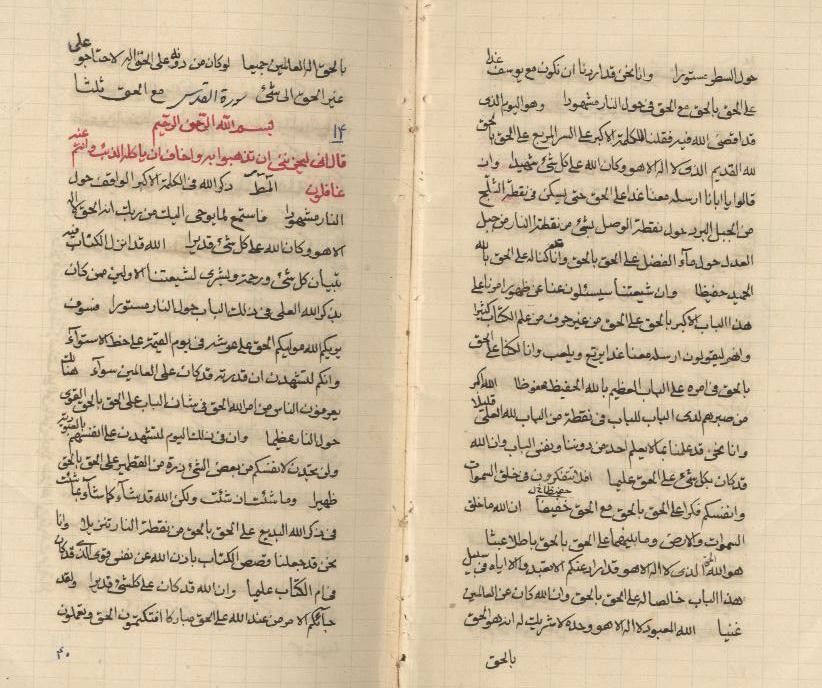 حول السطر مستورا وانا نحن قد اردنا ان نكون مع يوسف غدا
على الحق بالحق مع الحق فى حول النار مشهودا وهو اليوم الذى
قد اقضى الله فيه فقلنا للكلمة الاكبر على السر المربع على الحق بالحق
لله القديم الذى لا اله الا هو وكان الله على كل شئ شهيدا وان
قالوا يا ابانا ارسله معنا غدا على الحق حتى يسكن فى نقطة الثلج
من الجبل البرد حول نقطة الوصل لشئ من نقطة النار من جبل
العدل حول ماء الفضل على الحق بالحق وانا كنا له على الحق بالله
الحميد حفيظا وان شيعتنا سيسئلون عنا عن ظهير امرنا على
هذا الباب الاكبر بالحق على الحق من غير حرف من علم الكتاب كثيرا
وانهم ليقولون ارسله معنا غدا يرتع ويلعب وانا لكنا على الحق
بالحق فى امره على الباب العظيم بالله الحفيظ محفوظا الله اكبر
من صبرهم لدى الباب للباب فى نقطة من الباب لله العلى قليلا
وانا نحن قد علمنا بما لا يعلم احد من دوننا ونفى الباب وان الله
قد كان بكل شئ على الحق عليما افلا تتفكرون فى خلق السموات
وانفسكم فكرا على الحق بالحق مع الحق خفيضا ان الله ما خلق
السموات والارض وما بينهما على الحق بالحق باطلا عبثا
هو الله الحق الذى لا اله الا هو قد اراد عنكم الا تعبدوا الا اياه فى سبيل
هذا الباب خالصا له على الحق بالحق وان الله كان عن العالمين
غنيا الله المعبود لا اله الا هو وحده لا شريك له انه هو الحق
بالحق
بالحق اله العالمين جميعا لو كان من دونه على الحق اله لاحتاجوا على
غير الحق الى شئ سورة القدس مع الحق ثلثا
١٤ بسم الله الرحمن الرحيم
قال انى ليحزننى ان تذهبوا به واخاف ان ياكله الذئب وانتم عنه
غافلون المطر ذكر الله فى الكلمة الاكبر الواقف حول
النار مشهودا فاستمع لما يوحى اليك من ربك انه الحق لا اله
الا هو وكان الله على كل شئ قديرا الله قد انزل الكتاب فيه
تبيان كل شئ ورحمة وبشرى لشيعتنا الاولين من كان
بذكر الله العلى فى ذلك الباب حول النار مستورا فسوف
يريكم الله موليكم الحق على عرشه فى يوم القيمة على خط الاستواء
وانكم لتشهدن ان قدرته قد كان على العالمين سواء هنالك
يعرفون الناس من امر الله الحق فى شان الباب على الحق بالحق القوى
حول النار عظيما وان فى ذلك اليوم لتشهدن على انفسهم
ولن تجدن لانفسكم من بعض الشئ ذرة من القطمير على الحق بالحق
ظهيرا وما شئت ان شئت ولكن الله قد شاء كما شاء بما شئت
فى ذكر الله البديع على الحق بالحق من نقطة النار تنزيلا وانا
نحن قد جعلنا قصص الكتاب باذن الله عن نفس فوق الذى قد كان
فى ام الكتاب عليما وان الله قد كان على كلشئ قديرا ولقد
جائكم الامر من عند الله على الحق صبارا افتكتمون الحق وتعملون
٤٠